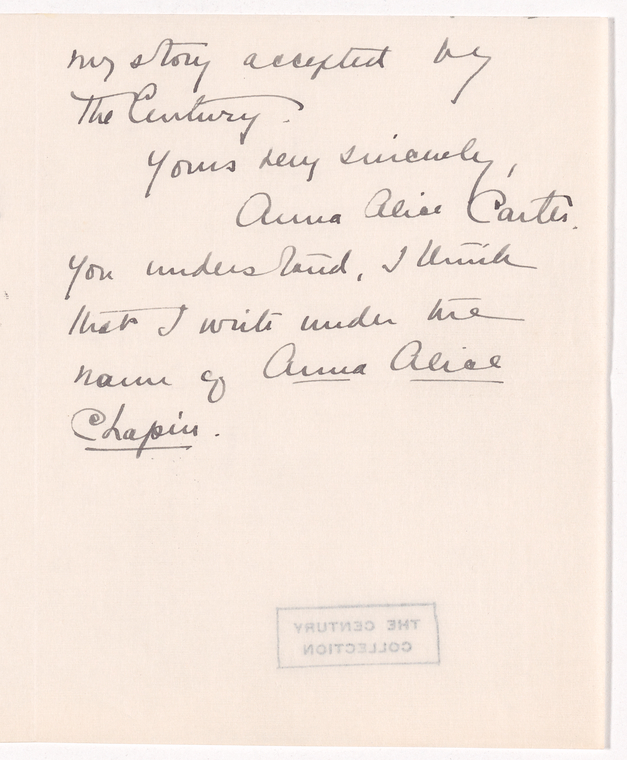 my story accepted by
The Century.
Yours very sincerely,
Anna Alice Carter.
You understand, I think
that I write under the
name of Anna Alice
Chapin.
THE CENTURY
COLLECTION